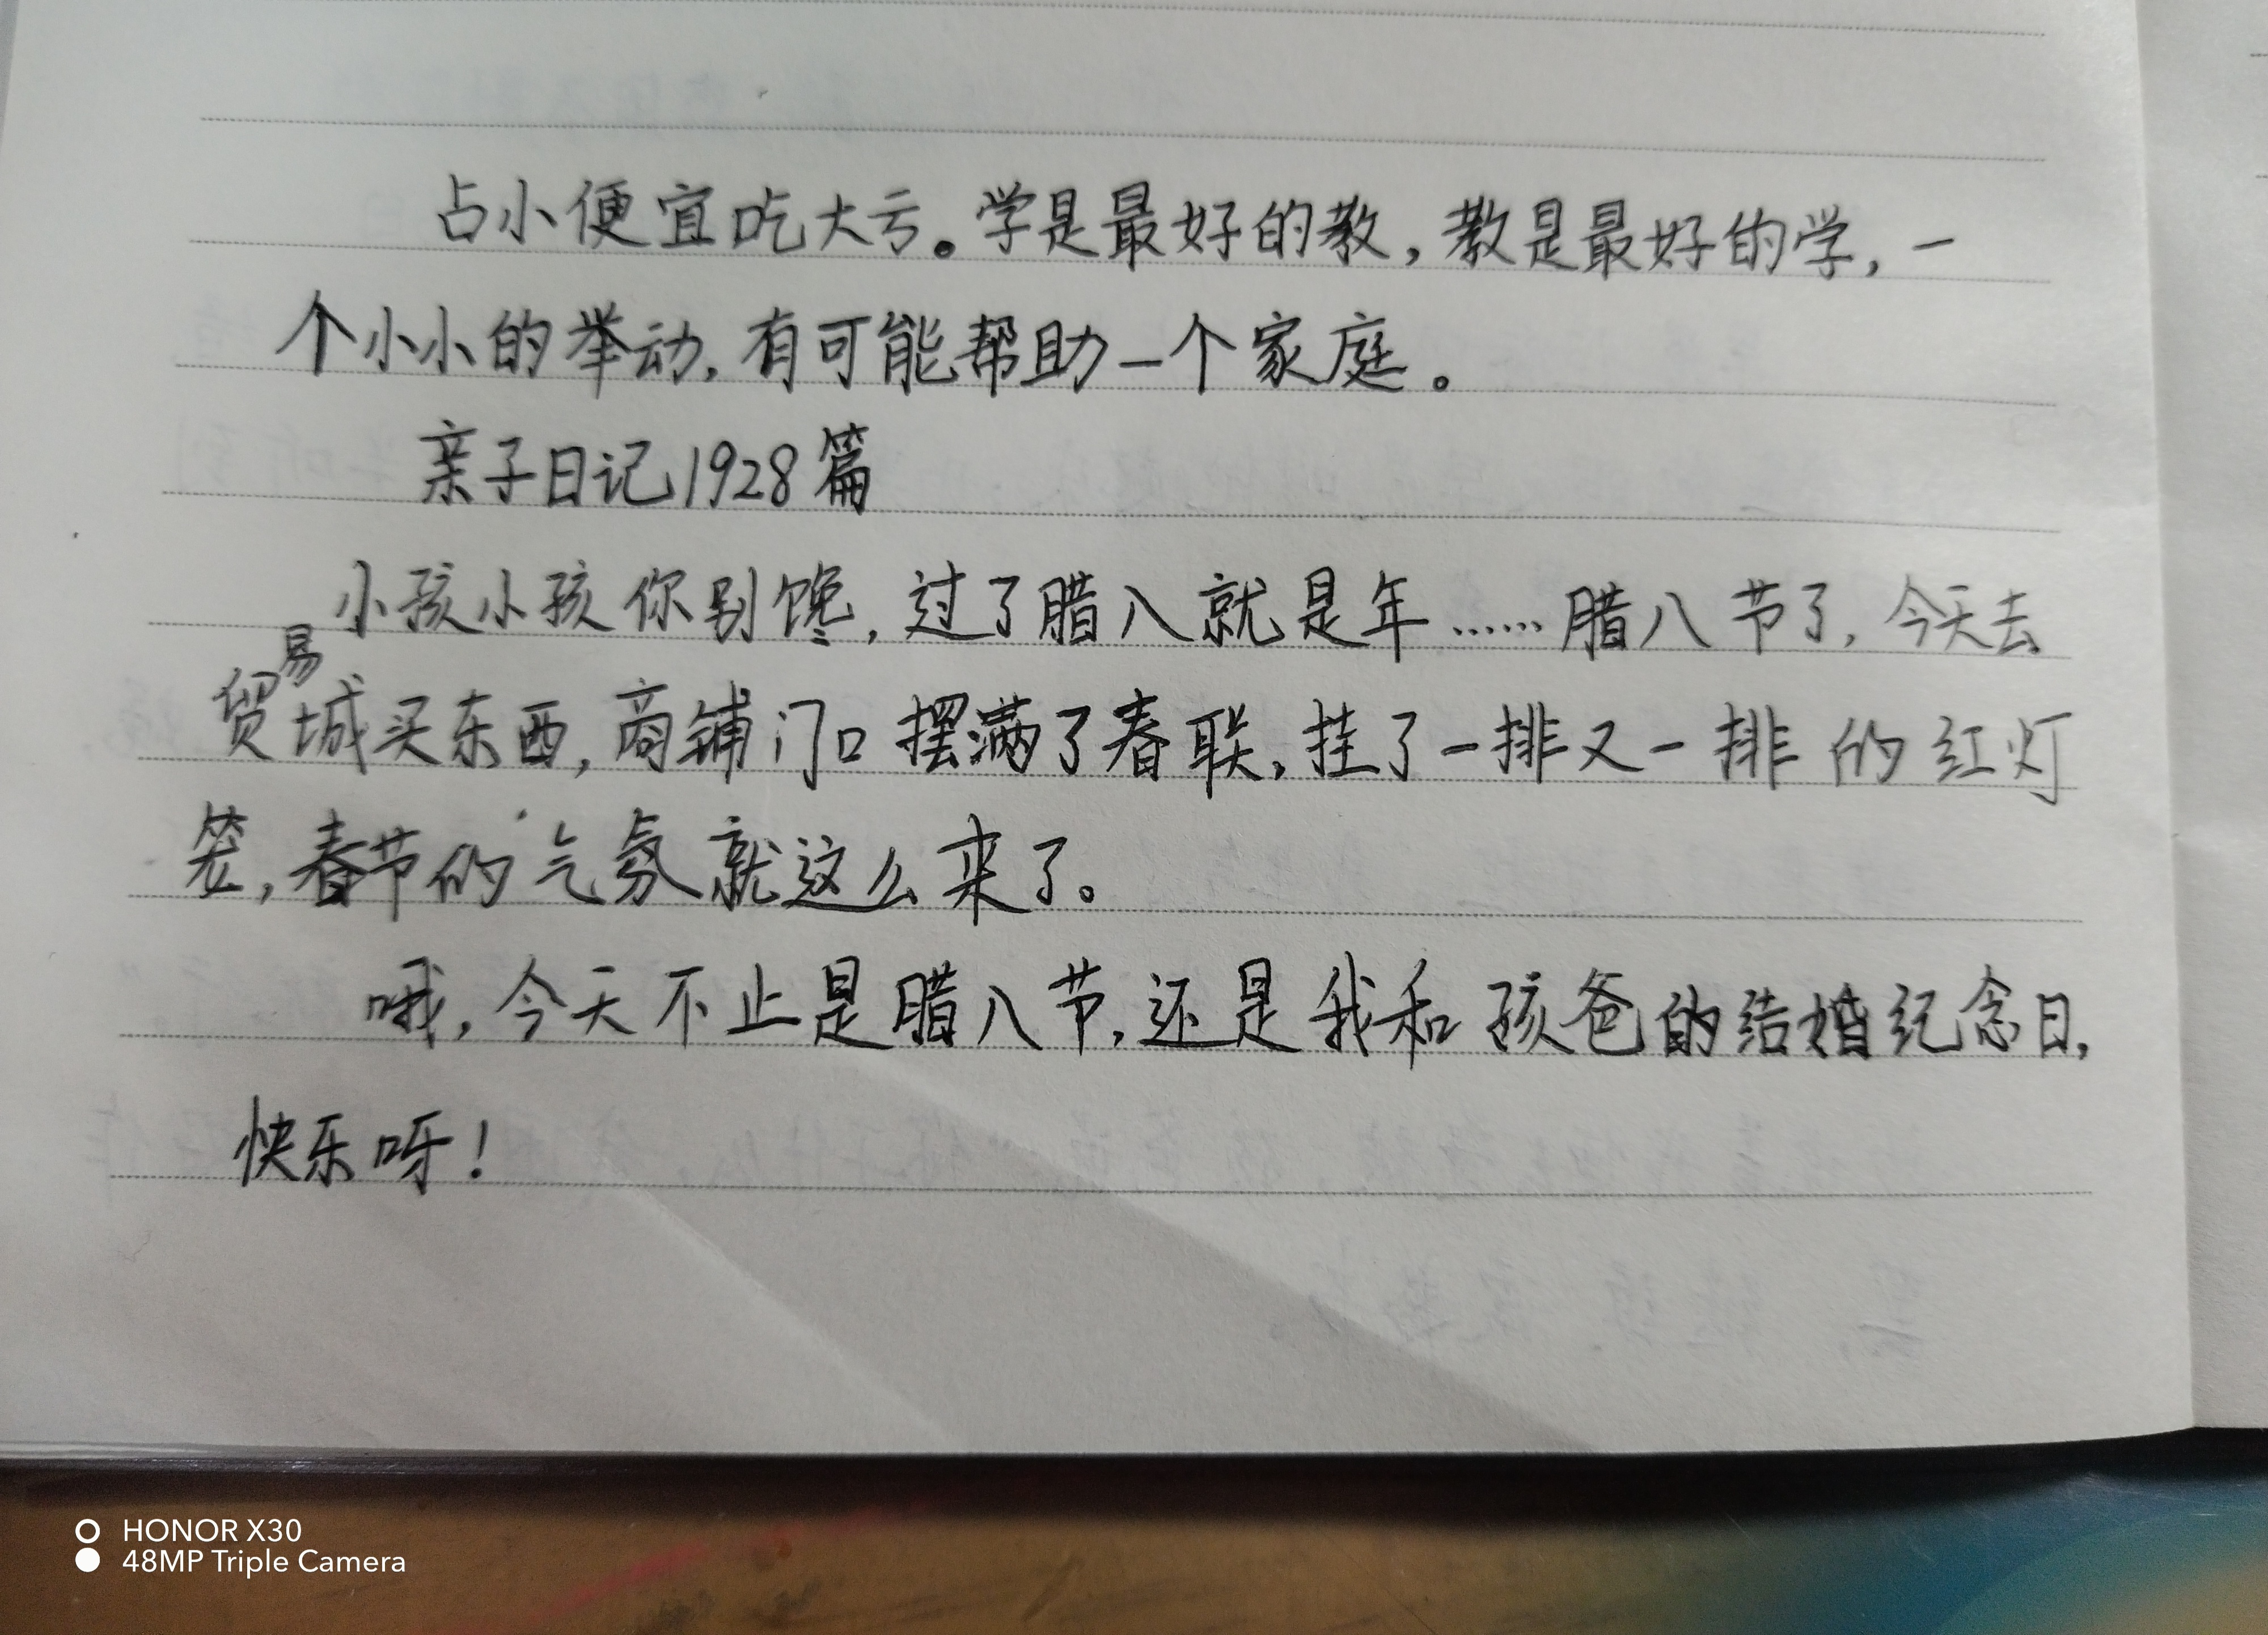 占小便宜吃大亏。学是最好的教,教是最好的学,一
个小小的举动,有可能帮助一个家庭。
亲子日记1928篇
小孩小孩你别馋,过了腊八就是年……腊八节了,今天去
贸易城买东西,商铺门口摆满了春联,挂了一排又一排的红灯
笼,春节的气氛就这么来了。
哦,今天不止是腊八节,还是我和孩爸的结婚纪念日,
快乐呀!
HONOR X30
48MP Triple Camera